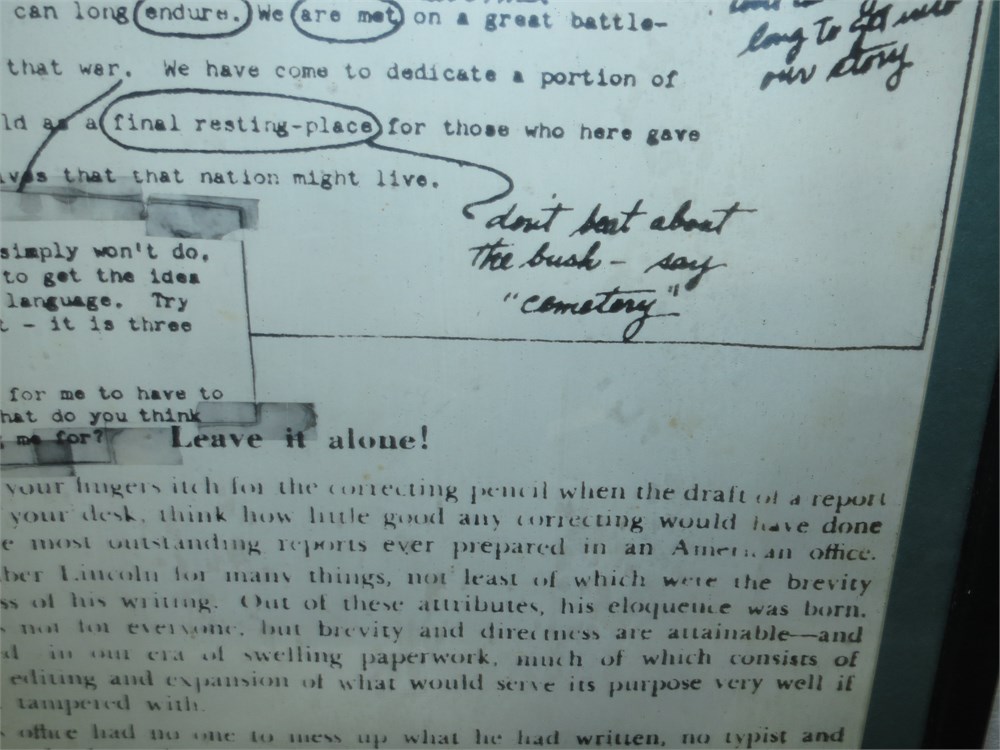 can long endure. We are met on a great battle-
long to get into
our story
that war. We have come to dedicate a portion of
ld as a final resting-place for those who here gave
ves that that nation might live.
don't beat about
the bush – say
"cemetery"
simply won't do,
to get the idea
language. Try
t - it is three
for me to have to
hat do you think
me for?
Leave it alone!
your fingers itch for the correcting pencil when the draft of a report
your desk, think how little good any correcting would have done
e most outstanding reports ever prepared in an American office.
ber Lincoln for many things, not least of which were the brevity
ss of his writing. Out of these attributes, his eloquence was born.
not for everyone, but brevity and directness are attainable—and
d in our era of swelling paperwork, much of which consists of
editing and expansion of what would serve its purpose very well if
tampered with.
office had no one to mess up what he had written, no typist and